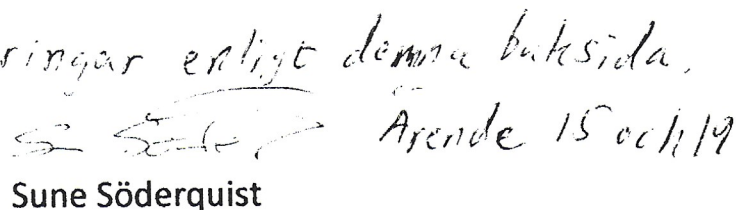 ringar enligt denna baksida.
Ärende 15 och 19
Sune Söderquist